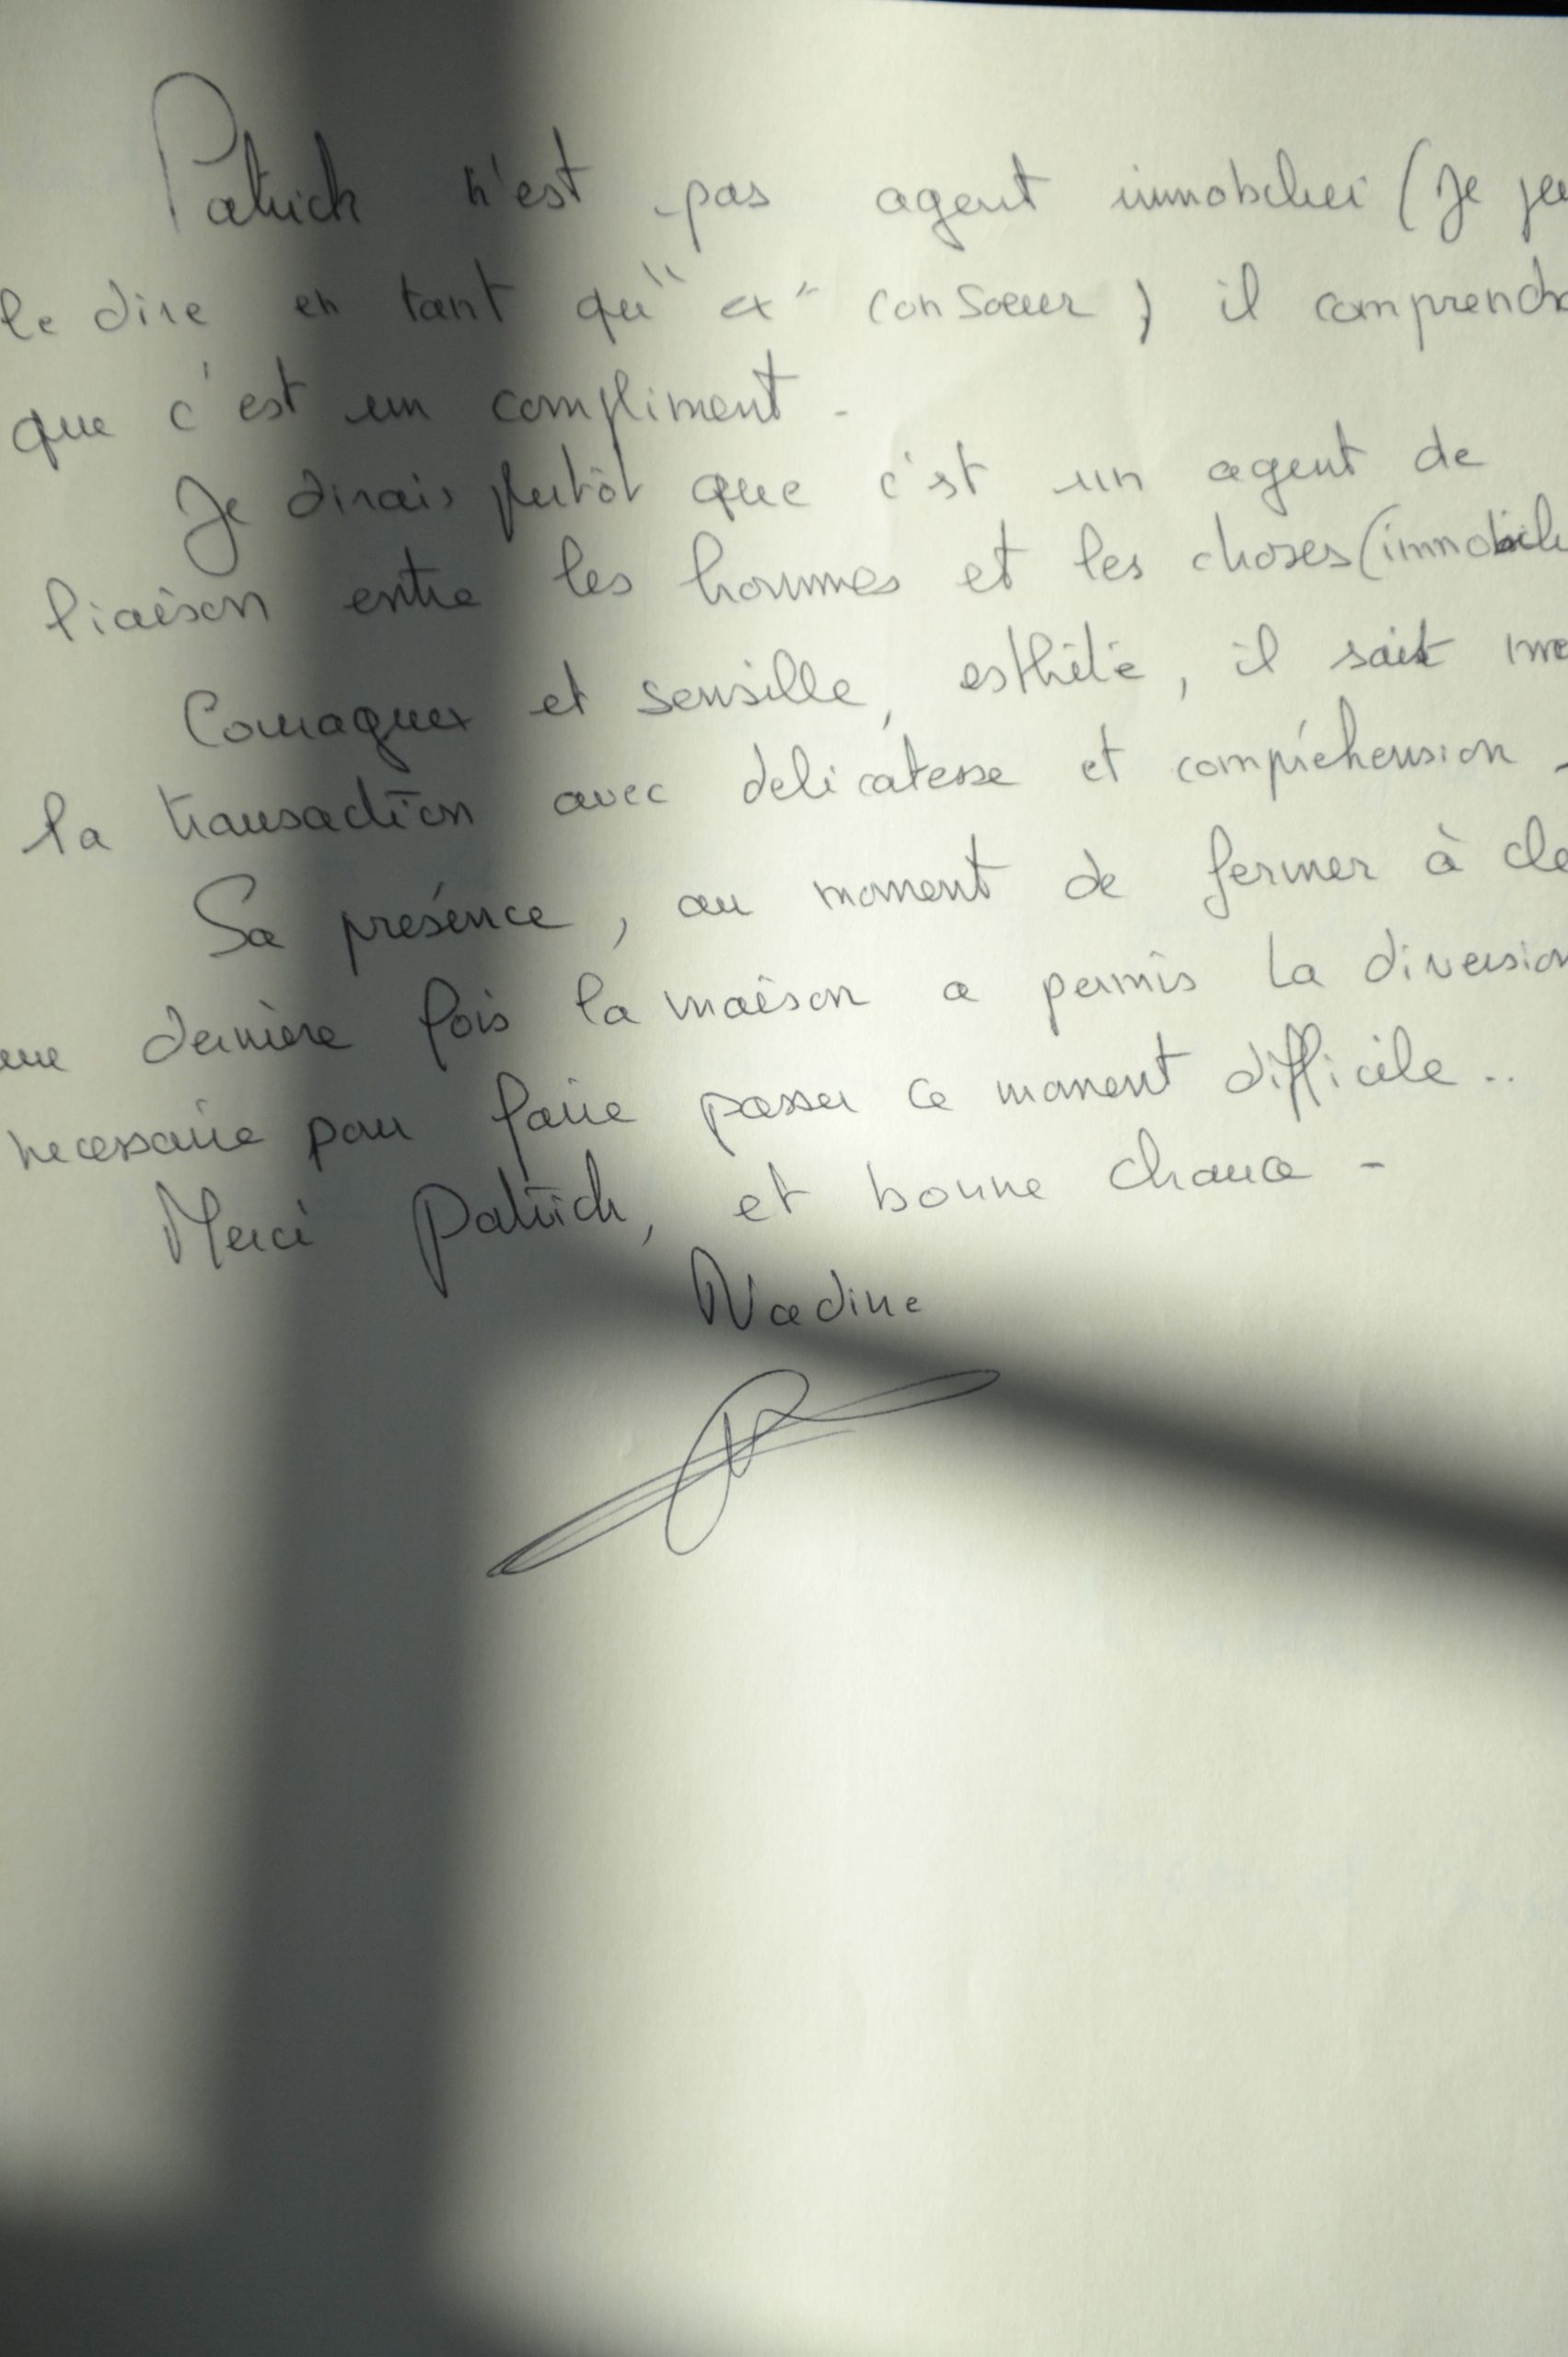 Patrick n'est pas agent immobilier (Je
le dire en tant qu'" ex" consoeur) il comprendra
que c'est un compliment -
Je dirais plutôt que c'est un agent de
liaison entre les hommes et les choses (immobile
et sensible, esthète, il sait
la transaction avec delicatesse et compréhension -
Sa présence, au moment de fermer à cle
une dernière fois la maison a permis la diversion
necessaire pour faire passer ce moment difficile..
Merci Patrick, et bonne chance -
Nadine